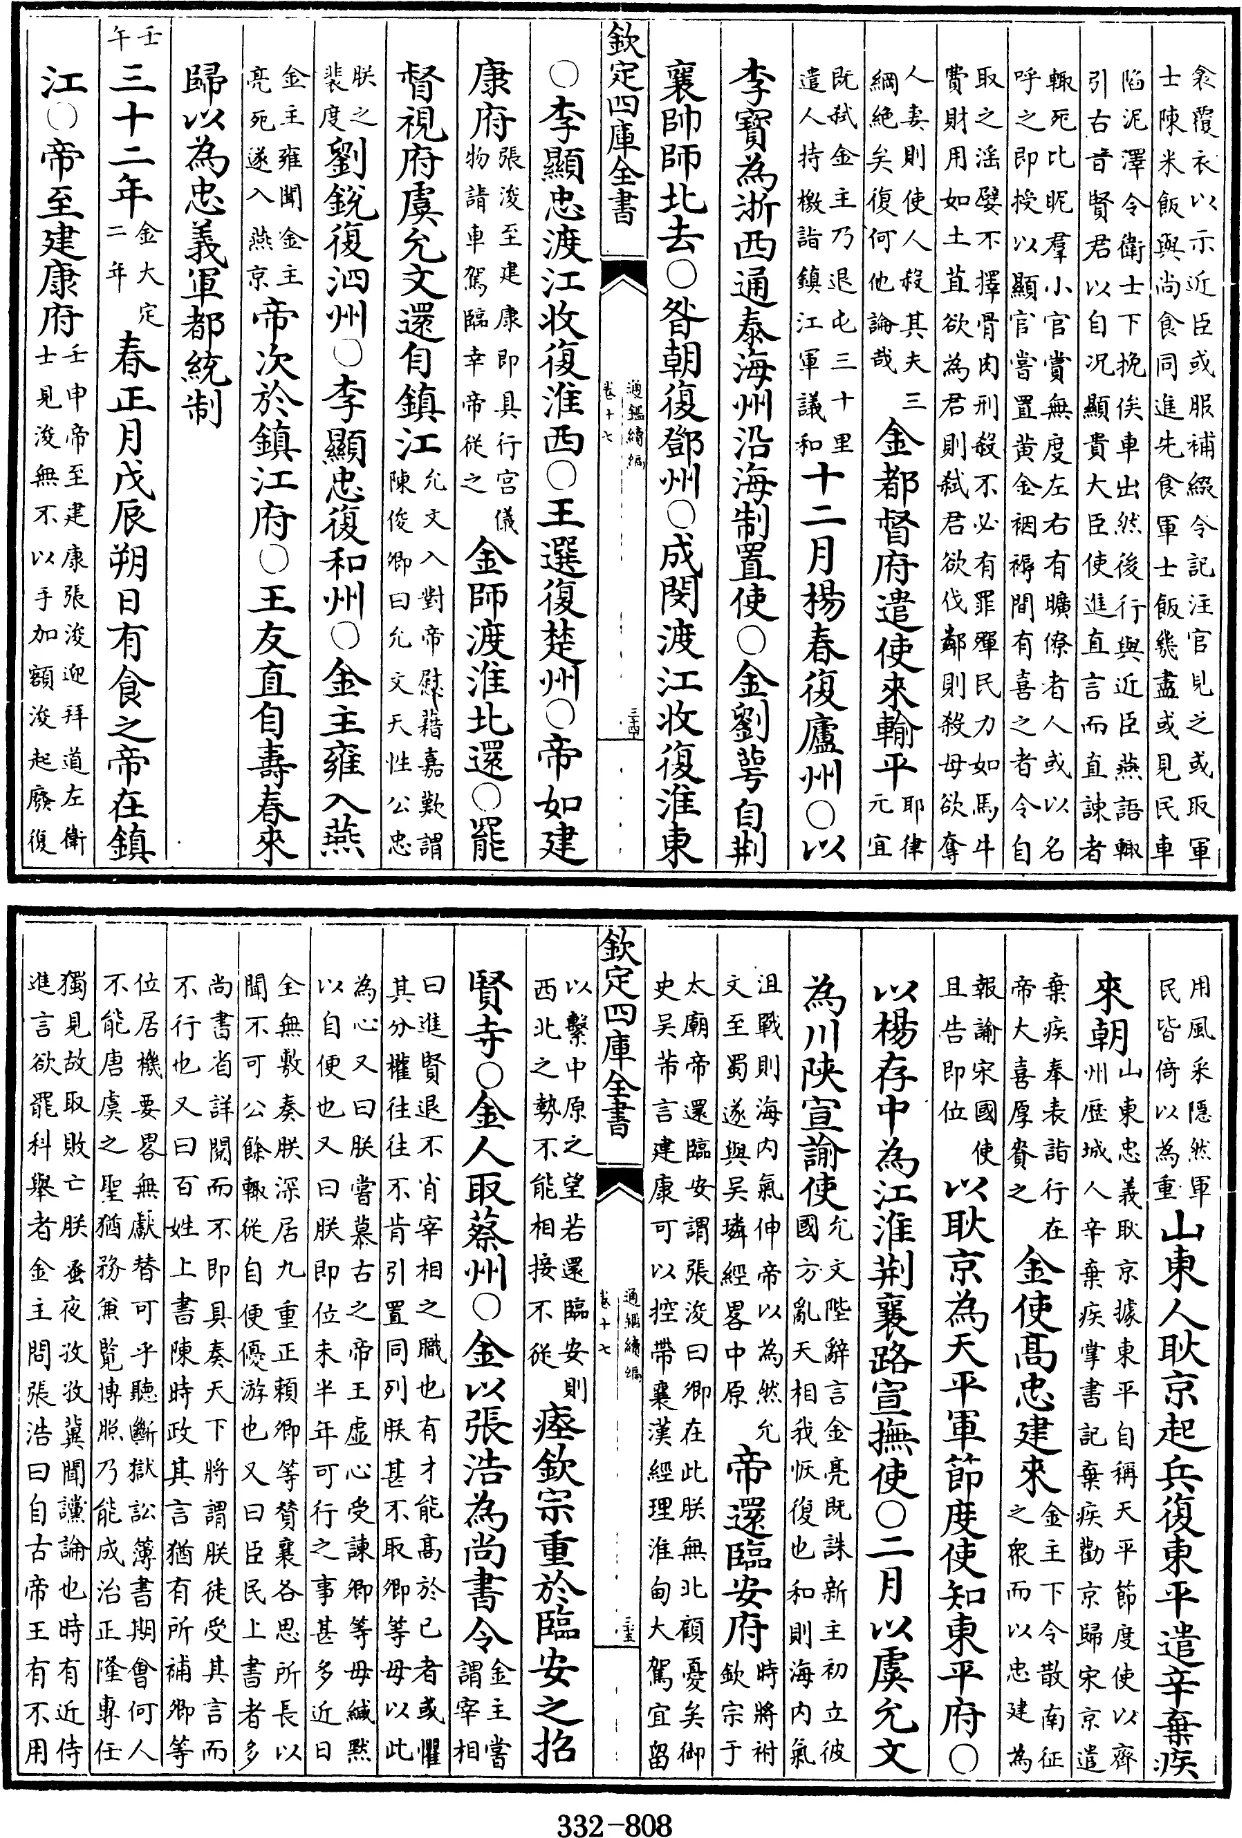 衾覆衣以示近臣或服補綴令記注官見之或取軍
士陳米飯與尚食同進先食軍士飯幾盡或見民車
陷泥澤令衛士下挽俟車出然後行與近臣燕語輙
引古昔賢君以自况顯貴大臣使進直言而直諫者
輙死比昵羣小官賞無度左右有曠僚者人或以名
呼之即授以顯官嘗置黄金裀褥間有喜之者令自
取之淫嬖不擇骨肉刑殺不必有罪殫民力如馬牛
費財用如土苴欲為君則弑君欲伐鄰則殺母欲奪
人妻則使人殺其夫三綱絶矣復何他論哉金都督府遣使來輸平耶律元宜
既弑金主乃退屯三十里遣人持檄詣鎮江軍議和十二月楊春復廬州○以
李寶為浙西通泰海州沿海制置使○金劉蕚自荆
襄帥師北去○昝朝復鄧州○成閔渡江收復淮東
欽定四庫全書 通鑑續編 卷十七 三十四
○李顯忠渡江收復淮西○王選復楚州○帝如建
康府張浚至建康即具行宫儀物請車駕臨幸帝從之金師渡淮北還○罷
督視府虞允文還自鎮江允文入對帝慰藉嘉歎謂陳俊卿曰允文天性公忠
朕之裴度劉銳復泗州○李顯忠復和州○金主雍入燕
金主雍聞金主亮死遂入燕京帝次於鎮江府○王友直自壽春來
歸以為忠義軍都統制
壬午三十二年金大定二年春正月戊辰朔日有食之帝在鎮
江○帝至建康府壬申帝至建康張浚迎拜道左衛士見浚無不以手加額浚起廢復
用風采隱然軍民皆倚以為重山東人耿京起兵復東平遣辛棄疾
來朝山東忠義耿京據東平自稱天平節度使以齊州歷城人辛棄疾掌書記棄疾勸京歸宋京遣
棄疾奉表詣行在帝大喜厚賚之金使髙忠建來金主下令散南征之衆而以忠建為
報諭宋國使且告即位以耿京為天平軍節度使知東平府○
以楊存中為江淮荆襄路宣撫使○二月以虞允文
為川陜宣諭使允文陛辭言金亮既誅新主初立彼國方亂天相我恢復也和則海内氣
沮戰則海内氣伸帝以為然允文至蜀遂與吴璘經畧中原帝還臨安府時將祔欽宗于
太廟帝還臨安謂張浚曰卿在此朕無北顧憂矣御史吴芾言建康可以控帶襄漢經理淮甸大駕宜留
欽定四庫全書 通鑑續編 卷十七 三十五
以繫中原之望若還臨安則西北之勢不能相接不從瘞欽宗重於臨安之招
賢寺○金人取蔡州○金以張浩為尚書令金主嘗謂宰相
曰進賢退不肖宰相之職也有才能髙於已者或懼其分權往往不肯引置同列朕甚不取卿等毋以此
為心又曰朕嘗慕古之帝王虚心受諫卿等毋緘黙以自便也又曰朕即位未半年可行之事甚多近日
全無敷奏朕深居九重正賴卿等賛襄各思所長以聞不可公餘輙從自便優游也又曰臣民上書者多
尚書省詳閲而不即具奏天下將謂朕徒受其言而不行也又曰百姓上書陳時政其言猶有所補卿等
位居機要畧無獻替可乎聽斷獄訟簿書期會何人不能唐虞之聖猶務兼覽博照乃能成治正隆專任
獨見故取敗亡朕蚤夜孜孜冀聞讜論也時有近侍進言欲罷科舉者金主問張浩曰自古帝王有不用
332-808